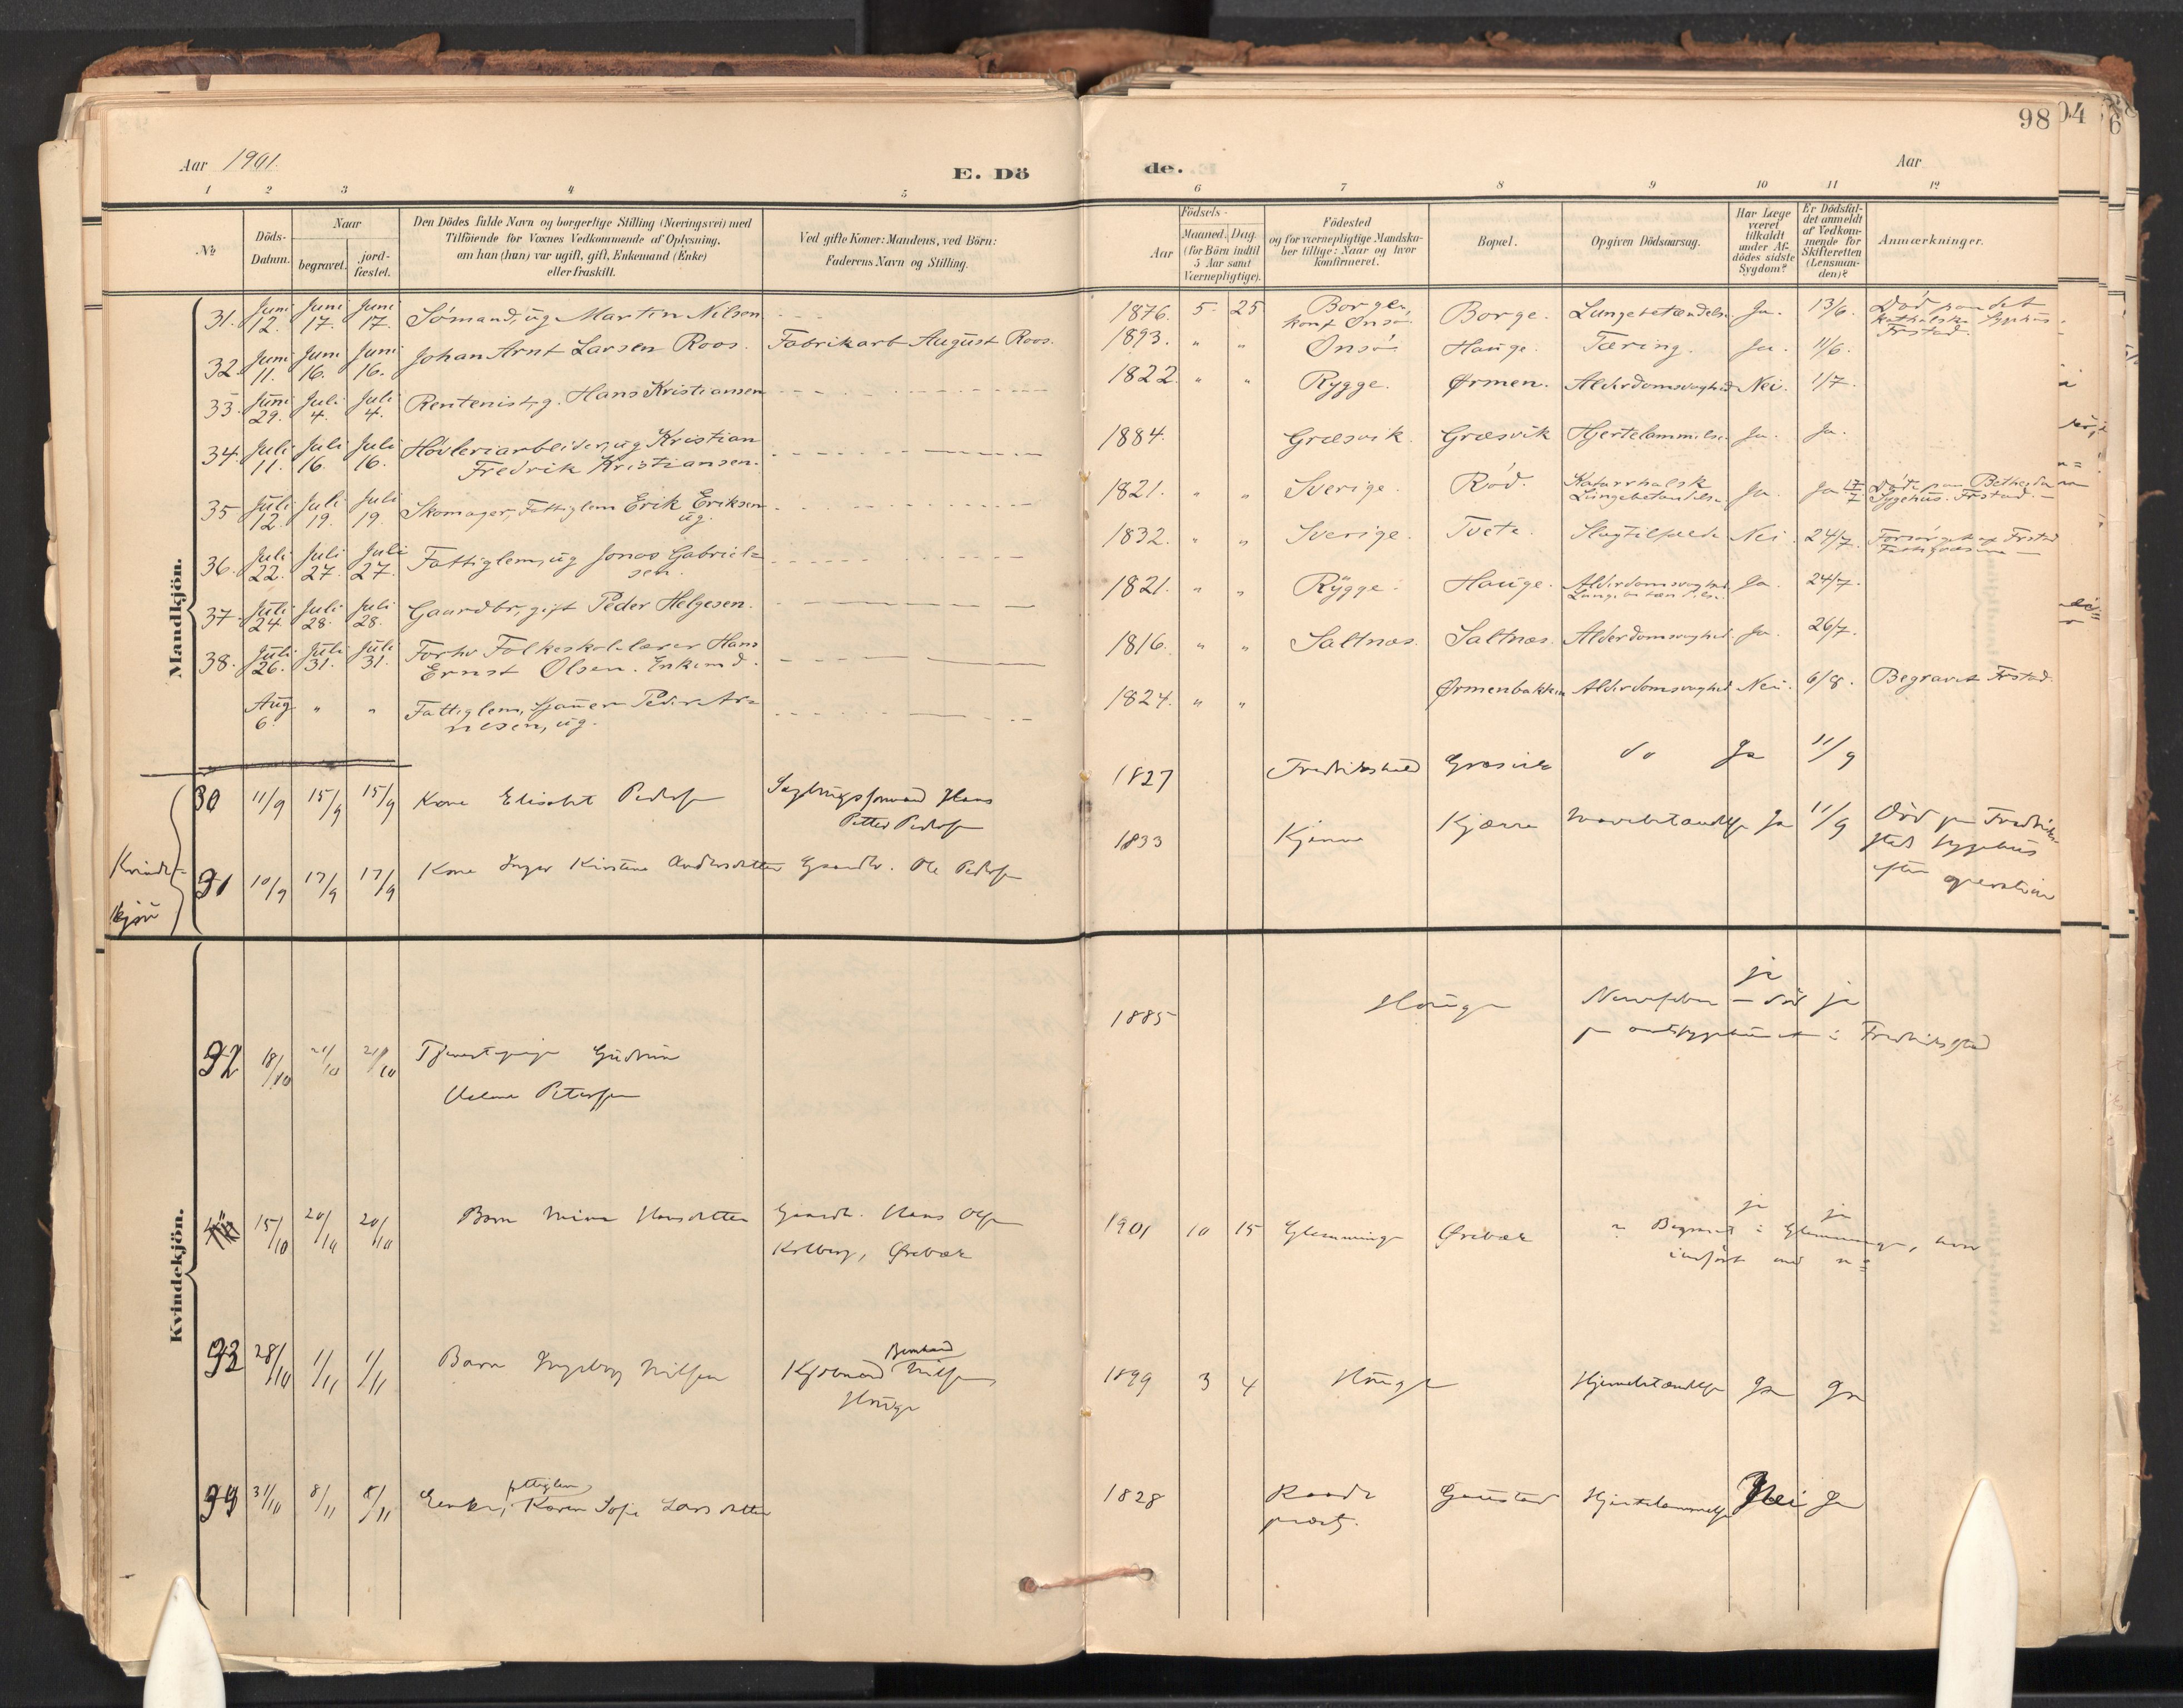 98
04
6
Aar 1901.
E. Dö
de.
Aar
1 2 3 4 5
6 7 8 9 10 11 12
№
Döds-
Datum.
Naar
begravet.
jord-
fæstet.
Den Dödes fulde Navn og borgerlige Stilling (Næringsvei) med
Tilföiende for Voxnes Vedkommende af Oplysning,
om han (hun) var ugift, gift, Enkemand (Enke)
eller fraskilt.
Ved gifte Koner: Mandens, ved Börn:
Faderens Navn og Stilling.
Födsels-
Aar
Maaned. Dag.
(for Börn indtil
5 Aar samt
Værnepligtige).
Födested
og for værnepligtige Mandska-
ber tillige: Naar og hvor
konfirmeret.
Bopæl.
Opgiven Dödsaarsag.
Har Læge
været
tilkaldt
under Af-
dödes sidste
Sygdom?
Er Dödsfal-
det anmeldt
af Vedkom-
mende for
Skifteretten
(Lensman-
den)?
Anmærkninger.
Mandkjön.
31. Juni 12. Juni 17. Juni 17. Sömand, ug Martin Nilsen
1876. 5. 25. Borge, konf Onsö. Borge. Lungebetændelse Ja. 13/6. Död paa det
katholske Sygehus
Frstad.
32. Juni 11. Juni 16. Juni 16. Johan Arnt Larsen Roos. Fabrikarb August Roos.
1893. " " Onsö Hauge. Tæring. Ja. 11/6.
33. Juni 29. Juli 4. Juli 4. Rentenist, g. Hans Kristiansen
1822. " " Rygge. Ørmen. Alderdomssvaghed Nei. 1/7.
34. Juli 11. Juli 16. Juli 16. Hövleriarbeider, ug Kristian
Fredrik Kristiansen.
1884. Græsvik. Græsvik Hjertelammelse Ja. Ja.
35 Juli 12. Juli 19. Juli 19. Skomager, Fattiglem Erik Eriksen
ug.
1821. " " Sverige. Röd. Katarrhalsk
Lungebetændelse. Ja. Ja 17/7 Döde paa Bethesda
Sygehus. Frstad.
36. Juli 22. Juli 27. Juli 27. Fattiglem, ug Jonas Gabriel=
sen.
1832. " " Sverige. Tvete. Slagtilfælde Nei. 24/7. Forsörget af Frstad
37. Juli 24. Juli 28. Juli 28. Gaardbr, gift Peder Helgesen.
1821. " " Rygge. Hauge. Alderdomssvaghed
Lungebetændelse. Ja. 24/7.
38. Juli 26. Juli 31. Juli 31. Forhv Folkeskolelærer Hans
Ernst Olsen. Enkemd.
1816. " " Saltnæs. Saltnæs. Alderdomssvaghed. Ja. 26/7.
Aug 6. " " Fattiglem, Sjauer Peder Ar=
nesen, ug.
1824. " " Ørmenbakken Alderdomssvaghed Nei. 6/8. Begravet Frstad.
Kvinde-
kjön
30 11/9 15/9 15/9 Kone Elisabet Pedersen
Hans
Petter Pedersen
1827 Fredrikshald Græsvik do Ja 11/9
31 10/9 17/9 17/9 Kone Inger Kirstine Andersdatter Gaardbr. Ole Pedersen
1833 Kjærre Kjærre Mavebetændelse Ja 11/9 Död paa Fredrik-
stad Sygehus
efter operation
Kvindekjön.
32 18/10 21/10 21/10 Tjenestepige Gudrun
Petersen
1885 Hauge Nervefeber — död ja ja
paa amtssygehuset i Fredrikstad
15/10 20/10 20/10 Barn Hansdatter Gaardb. Hans Olsen
Kolberg, Örebæk
1901 10 15 Glemminge Örebæk ja ja
Begravet i Glemminge, hvor
indfört med №
33 28/10 1/11 1/11 Barn Ingeborg Nilsen Bernhard Nilsen
Hauge
1899 3 4 Hauge Hjernebetændelse Ja Ja
34 31/10 8/11 8/11 Enke, fattiglem, Karen Sofie Larsdatter
1828 Raade
præstg. Gaustad Hjertelammelse Nei Ja